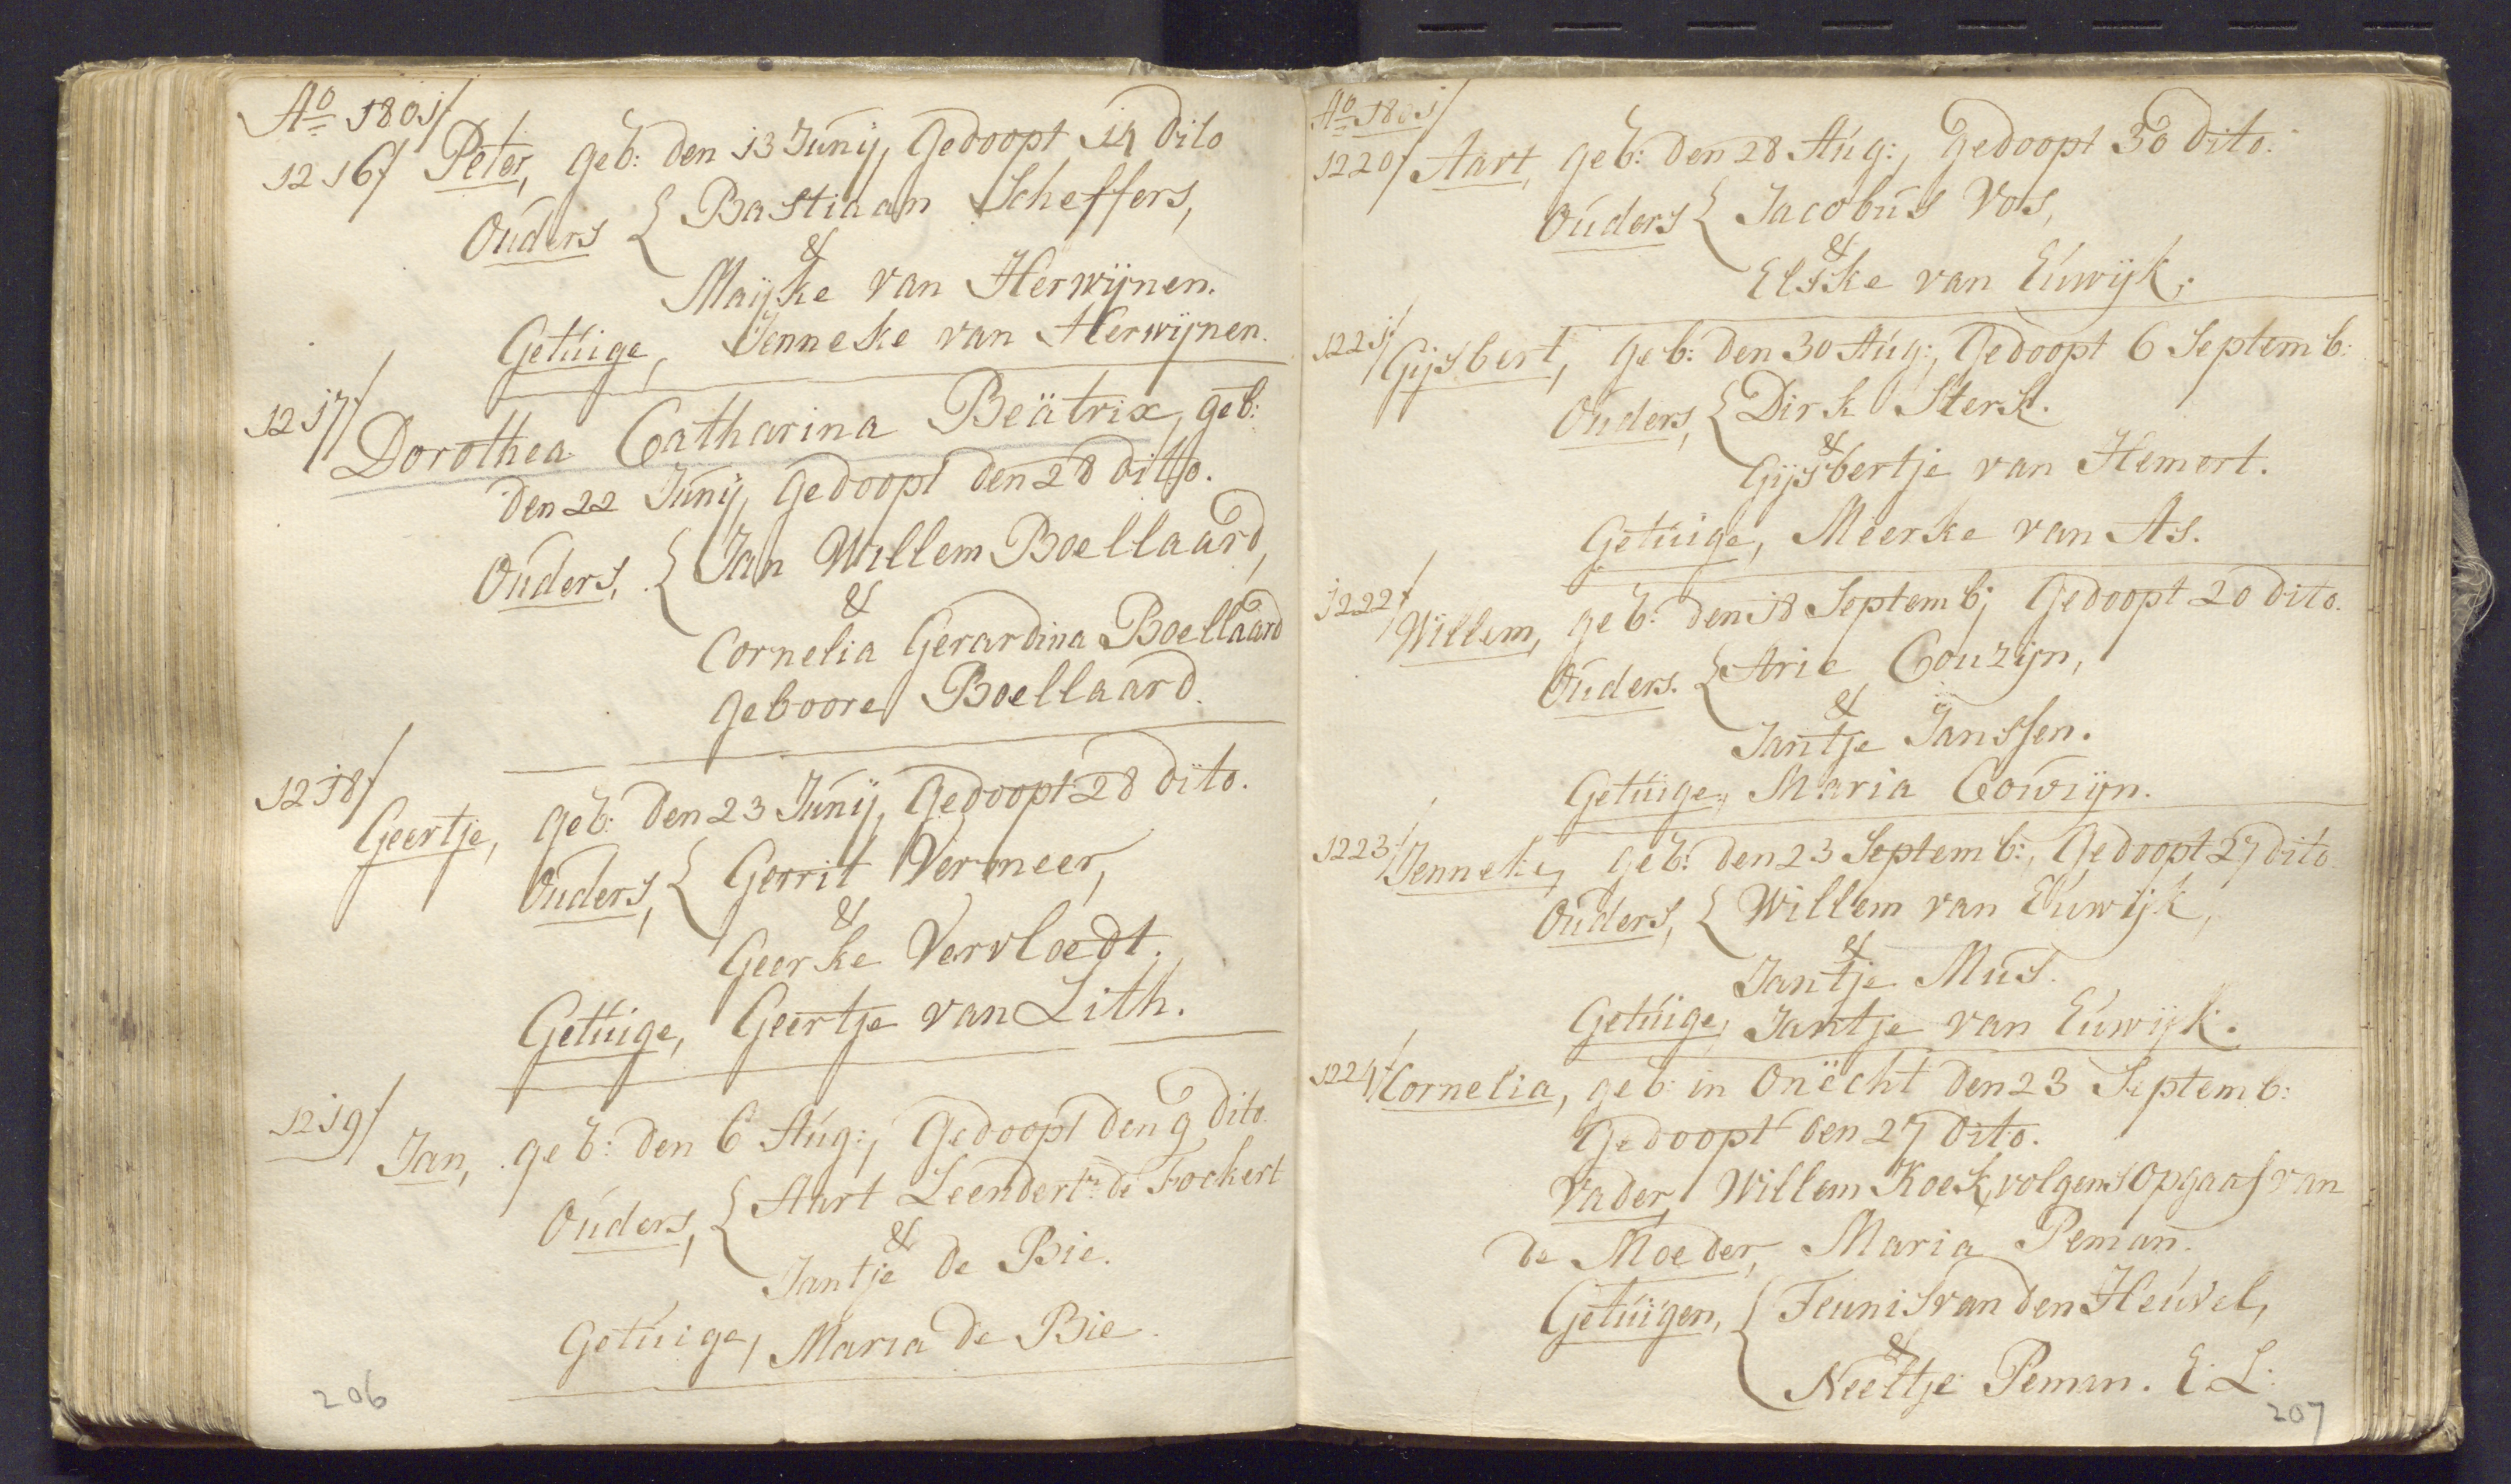 Ao 1801/
1216/ Peter, geb: den 13 Junij, Gedoopt 14 dito
Ouders { Bastiaan Scheffers,
&
Maijke van Herwijnen.
Getuige, Jenneke van Herwijnen.
1217/ Dorothea Catharina Beätrix, geb:
den 22 Junij, Gedoopt den 28 ditto.
Ouders, { Jan Willem Boellaard,
&
Cornelia Gerardina Boellaard
geboore Boellaard.
1218/ Geertje, geb: den 23 Junij, Gedoopt 28 dito.
Ouders, { Gerrit Vermeer,
&
Geerke Vervloedt.
Getuige, Geertje van Lith.
1219/ Jan, geb: den 6 Aug:, Gedoopt den 9 dito.
Ouders, { Aart Leendertz: de Fockert
&
Jantje de Bie.
Getuige, Maria de Bie.
206
Ao 1801/
1220/ Aart, geb: den 28 Aug:, Gedoopt 30 dito.
Ouders { Jacobus Vos,
&
Elske van Euwijk.
1221/ Gijsbert, geb: den 30 Aug:, Gedoopt 6 Septemb:
Ouders, { Dirk Sterk.
&
Gijsbertje van Hemert.
Getuige, Meerke van As.
1222/ Willem, geb: den 18 Septemb; Gedoopt 20 dito.
Ouders. { Arie Couzijn,
&
Jantje Janssen.
Getuige, Maria Cowijn.
1223/ Jenneke, geb: den 23 Septemb:, Gedoopt 27 dito
Ouders, { Willem van Euwijk,
&
Jantje Mus.
Getuige, Jantje van Euwijk.
1224/ Cornelia, geb: in Onëcht den 23 Septemb:
Gedoopt den 27 dito.
Vader, Willem Koek, volgens opgaaf van
de Moeder, Maria Peman.
Getuigen, { Teunis van den Heuvel,
&
Neeltje Peman. E: L:
207